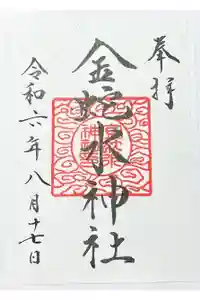 奉拝
金蛇水神社
令和六年八月十七日